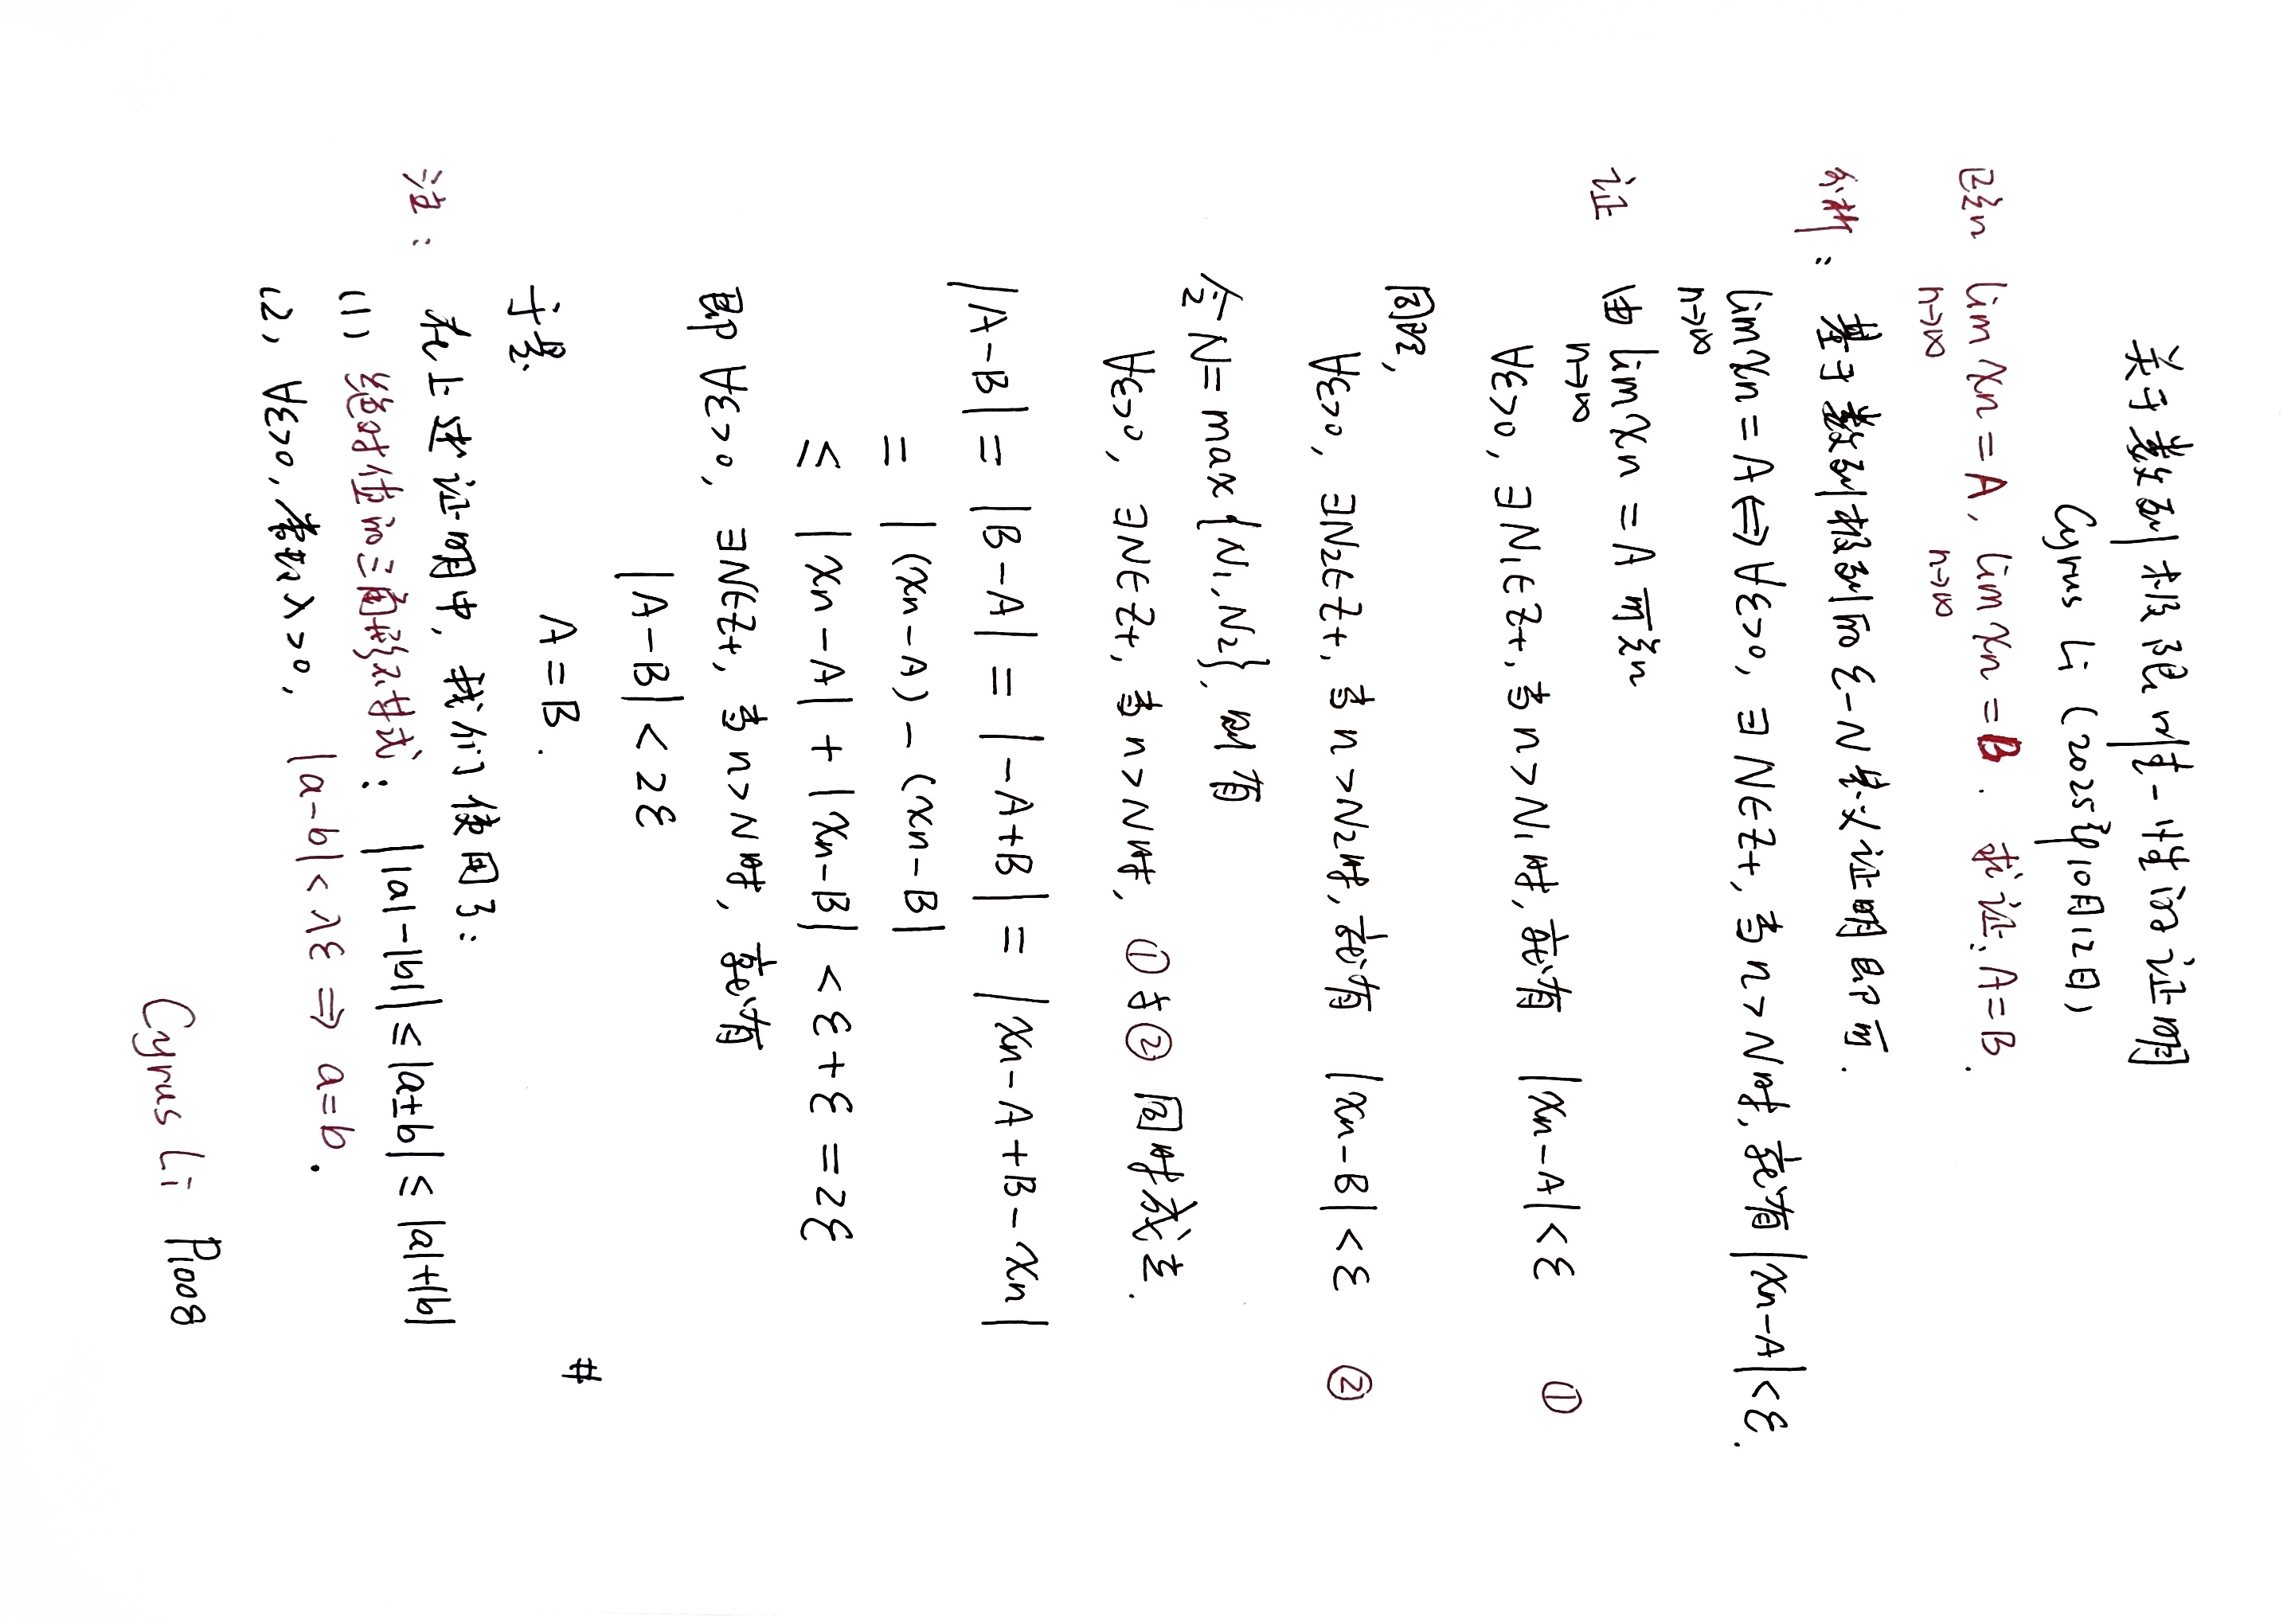 关于数列极限唯一性的证明
Cyrus Li (2025年10月12日)
已知 lim xn = A, lim xn = B. 求证: A = B.
n→∞ n→∞
分析: 基于数列极限的 ε-N 定义证明即可.
lim xn = A ⇔ ∀ε>0, ∃N∈Z+, 当 n>N时, 就有 |xn-A|<ε.
n→∞
证 由 lim xn = A 可知
n→∞
∀ε>0, ∃N₁∈Z+, 当 n>N₁时, 就有 |xn-A|<ε ①
同理,
∀ε>0, ∃N₂∈Z+, 当 n>N₂时, 就有 |xn-B|<ε ②
令 N = max{N₁, N₂}, 则有
∀ε>0, ∃N∈Z+, 当 n>N时, ①与② 同时成立.
|A-B| = |B-A| = |-A+B| = |xn-A+B-xn|
= |(xn-A)-(xn-B)|
≤ |xn-A| + |xn-B| < ε+ε = 2ε
即 ∀ε>0, ∃N∈Z+, 当 n>N时, 就有
|A-B| < 2ε
于是
A = B. #
注: 在上述证明中, 我们使用了:
(1) 绝对值的三角形不等式: ||a|-|b|| ≤ |a±b| ≤ |a|+|b|
(2) ∀ε>0, 常数 λ>0, |a-b| < λε ⇒ a=b.
Cyrus Li P1008